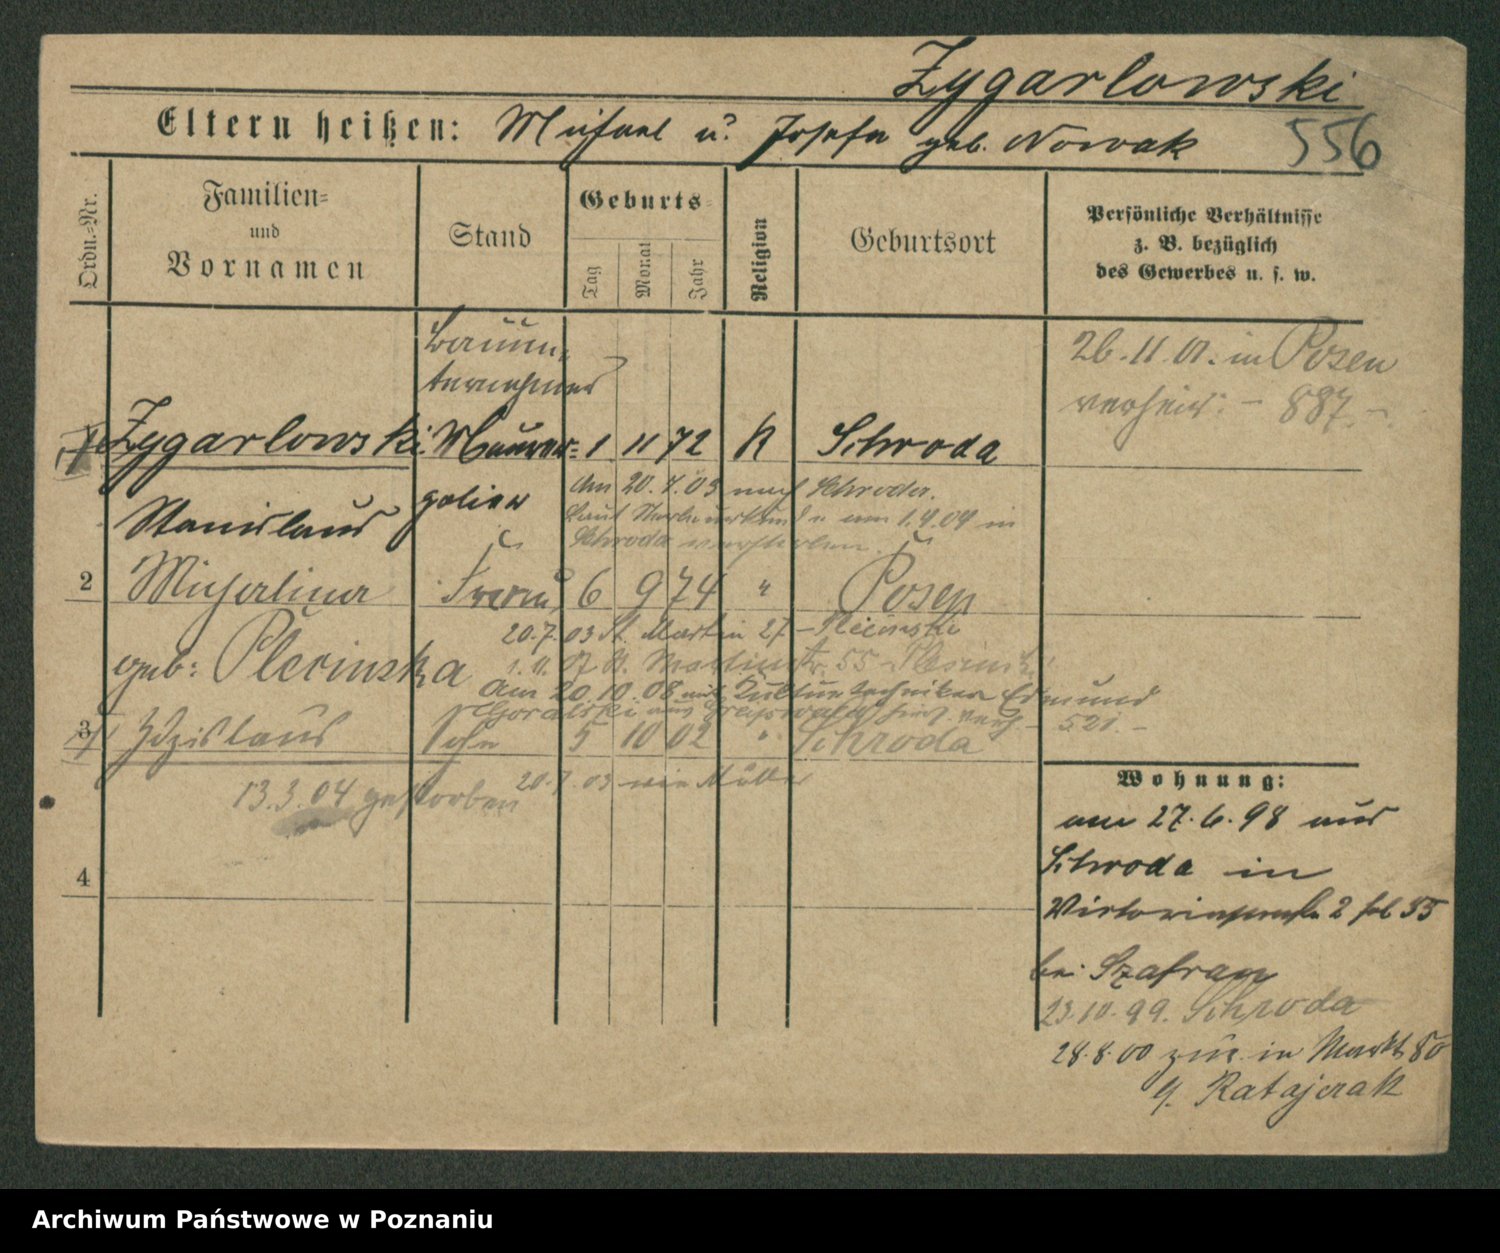 Zygarlowski
Eltern heißen: Michael u. Josefa geb. Nowak 556
Ordn.-Nr.
Familien- und Vornamen
Stand
Geburts-
Tag
Monat
Jahr
Religion
Geburtsort
Persönliche Verhältnisse
z. B. bezüglich
des Gewerbes u. s. w.
Bauun-
ternehmer
26.11.01. in Posen
verheir. - 887. -
1 Zygarlowski Maurer- 1 11 72 K Schroda
Stanislaus polier
Am 20.7.03 nach Schroda.
laut Sterbeurkunde am 1.4.04 in
Schroda verstorben.
2 Michalina Frau 6 9 74 " Posen
geb: Plecinska
20.7.03 St. Martin 27 - Plecinski
St. Martinstr. 55 Plecinski
Am 20.10.08 mit Kulturtechniker Edmund
Goralski aus Greifswald verh. - 521. -
3 Zdzislaus Sohn 5 10 02 " Schroda
20.7.03 wie Mutter
13.3.04 gestorben
4
Wohnung:
am 27.6.98 aus
Schroda in
Victoriastraße 2 fol 55
bei Szafran
23.10.99. Schroda
28.8.00 zur. in Markt 80
b. Ratajczak
Archiwum Państwowe w Poznaniu